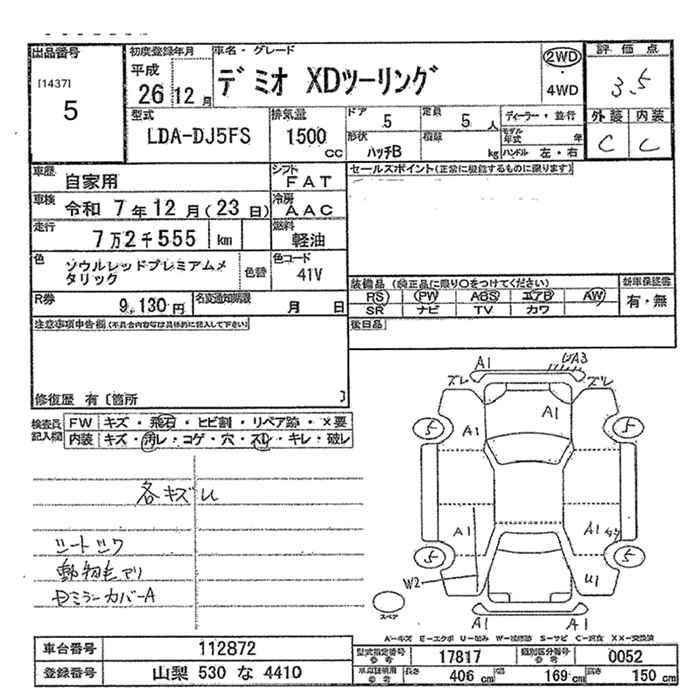 出品番号
[1437]
5
初度登録年月
平成
26 12月
車名・グレード
デミオ XDツーリング
2WD
・
4WD
評価点
3.5
外装 内装
C C
型式
LDA-DJ5FS
排気量
1500
cc
ドア
5
定員
5 人
形状
ハッチB
積載
kg
ディーラー・並行
モデル年式 年
ハンドル 左・右
車歴
自家用
シフト
FAT
車検
令和 7年12月(23日)
冷房
AAC
走行
7万2千555 km
燃料
軽油
色
ソウルレッドプレミアムメ
タリック
色替
色コード
41V
R券
9,130円
名変通知期限
月 日
セールスポイント(正常に機能するものに限ります)
装備品 (純正品に限り○をつけてください)
PS PW ABS エアB AW
SR ナビ TV カワ
新車保証書
有・無
後日品
注意事項申告欄(不具合内容等は具体的に記入して下さい)
修復歴 有〔箇所 〕
検査員
記入欄
FW キズ・飛石・ヒビ割・リペア跡・×要
内装 キズ・汚レ・コゲ・穴・スレ・キレ・破レ
各キズU
シートシワ
動物毛アリ
Dミラーカバー A
A1 UA3
ズレ ズレ
5 A1 A1 5
A1 A1
5 5
W2 U1
スペア
A1 A1
A-キズ E-エクボ U-凹み W-補修跡 S-サビ C-腐食 XX-交換済
車台番号 112872
登録番号 山梨 530 な 4410
型式指定番号
参考
17817
類別区分番号
参考
0052
長さ 406 cm
幅 169 cm
高さ 150 cm